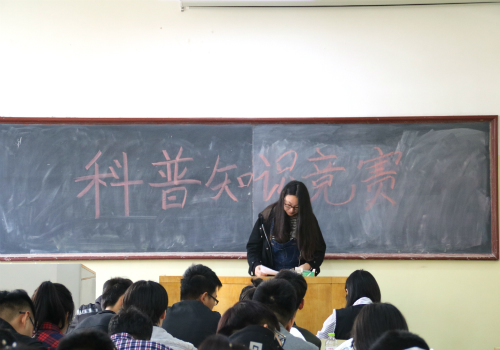 科普知识竞赛